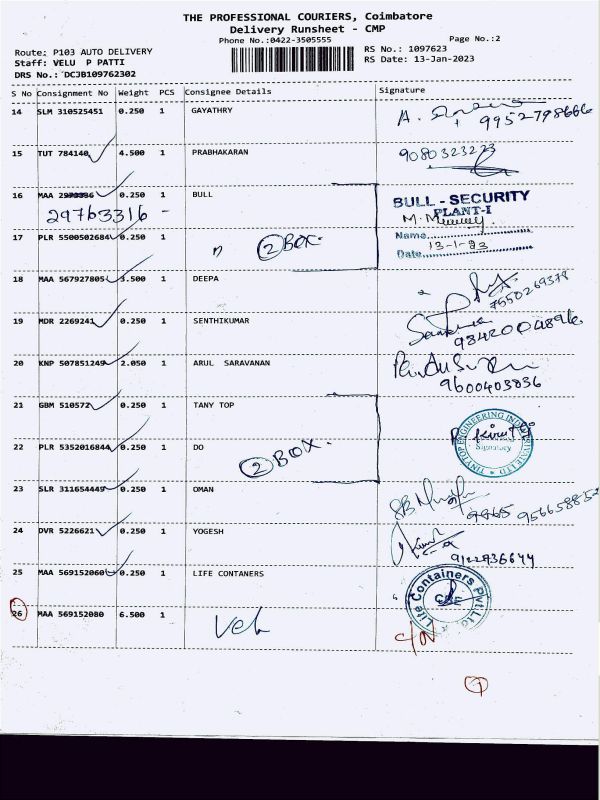 THE PROFESSIONAL COURIERS, Coimbatore
Delivery Runsheet - CMP
Phone No.:0422-3505555
Page No.:2
Route: P103 AUTO DELIVERY
RS No.: 1097623
Staff: VELU P PATTI
RS Date: 13-Jan-2023
DRS No.: DCJB109762302
S No Consignment No Weight PCS Consignee Details Signature
14 SLM 310525451 0.250 1 GAYATHRY
A.
9952798666
15 TUT 784140 4.500 1 PRABHAKARAN
9080323223
16 MAA 0.250 1 BULL
29763316 -
BULL - SECURITY
PLANT-I
Name
13-1-23
Date
17 PLR 5500502684 0.250 1
2 BOX.
18 MAA 567927805 3.500 1 DEEPA
7550269378
19 MDR 2269241 0.250 1 SENTHIKUMAR
9842004896
20 KNP 507851249 2.050 1 ARUL SARAVANAN
9600403836
21 GBM 510572 0.250 1 TANY TOP
TINYTOP ENGINEERING INDIA PRIVATE LTD
Signatory
22 PLR 5352016844 0.250 1 DO
2 BOX.
23 SLR 311654449 0.250 1 OMAN
956658852
24 DVR 5226621 0.250 1 YOGESH
9122936644
25 MAA 569152060 0.250 1 LIFE CONTANERS
Life Containers Pvt Ltd
CBE
26 MAA 569152080 6.500 1
Vel